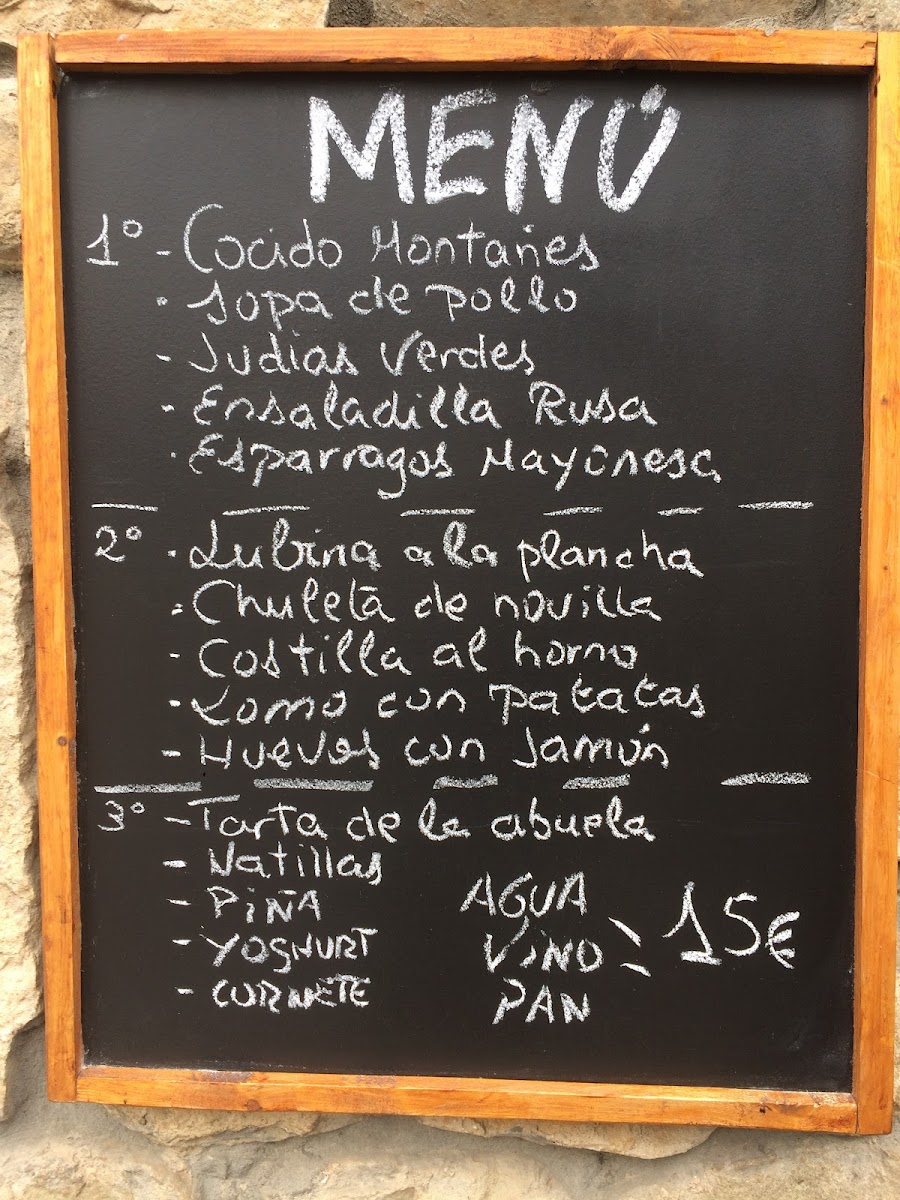 MENÚ
1º - Cocido Montañes
- Sopa de pollo
- Judias Verdes
- Ensaladilla Rusa
- Esparragos Mayonesa
2º - Lubina a la plancha
- Chuleta de novilla
- Costilla al horno
- Lomo con patatas
- Huevos con Jamón
3º - Tarta de la abuela
- Natillas
- PiÑA
- YOGHURT
- CORNETE
AGUA
ViNO = 15€
PAN